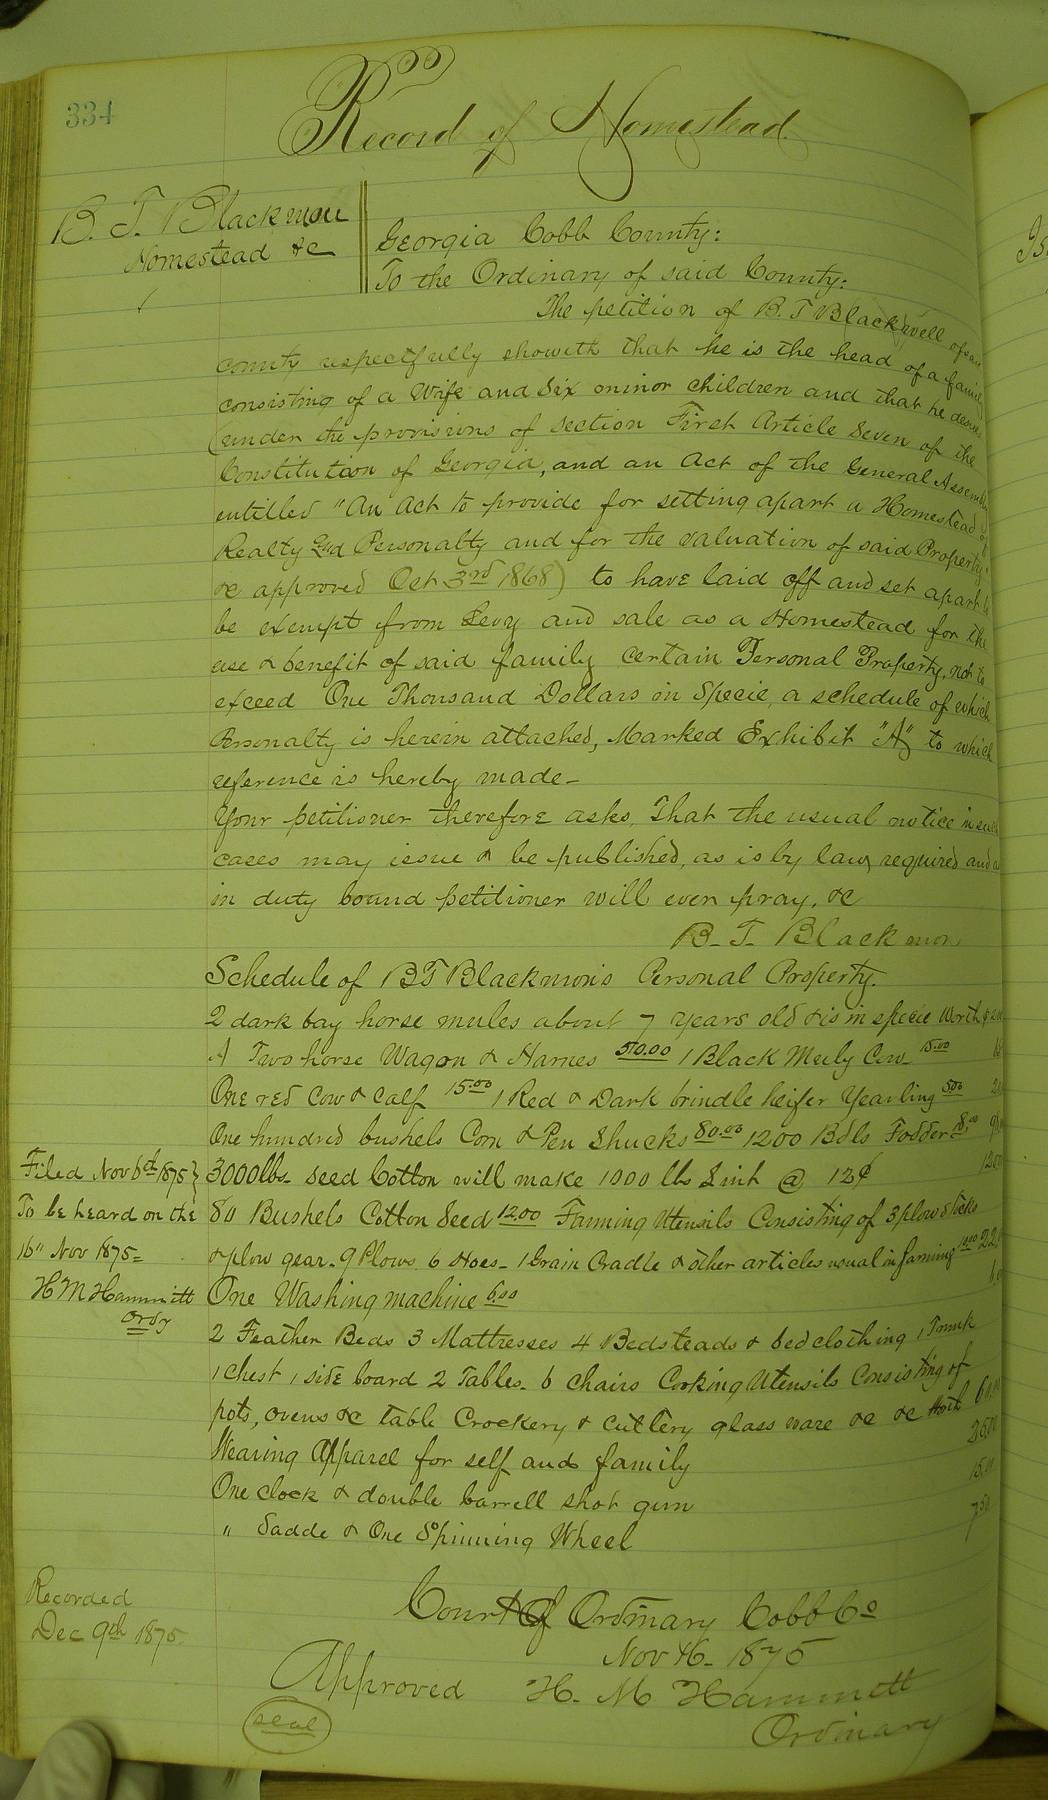 334
Record of Homestead
B. T. Blackmon
Homestead &c
Georgia Cobb County:
To the Ordinary of said County:
The petition of B. T Blackwell of
county respectfully showeth that he is the head of a family
consisting of a Wife and Six minor children and that he desires
(under the provisions of section First Article Seven of the
Constitution of Georgia, and an Act of the General Assembly
entitled "An Act to provide for setting apart a Homestead of
Realty and Personalty and for the valuation of said Property"
&c approved Oct 3rd 1868) to have laid off and set apart to
be exempt from Levy and sale as a Homestead for the
use & benefit of said family certain Personal Property, not to
exceed One Thousand Dollars in Specie, a schedule of which
Personalty is herein attached, Marked Exhibit "A" to which
reference is hereby made-
Your petitioner therefore asks, That the usual notice in such
cases may issue & be published, as is by law required and as
in duty bound petitioner will ever pray, &c
B. T. Blackmon
Schedule of B T Blackmon's Personal Property.
2 dark bay horse mules about 7 years old & is in specie Worth
A Two horse Wagon & Harnes 50.00 1 Black Muly Cow 15.00
One red Cow & Calf 15.00 1 Red & Dark brindle heifer Yearling 5.00
One hundred bushels Corn & Pen Shucks 80.00 1200 Bdls Fodder 18.00
Filed Nov 6th 1875} 3000 lbs. Seed Cotton will make 1000 lbs Lint @ 12¢
To be heard on the 80 Bushels Cotton Seed 12.00 Farming Utensils Consisting of 3 plow stocks
16" Nov 1875= & plow gear. 9 Plows 6 Hoes- 1 Grain Cradle & other articles usual in farming
H M Hammett One Washing machine 6.00
Ordy
2 Feather Beds 3 Mattresses 4 Bedsteads & bed clothing 1 Trunk
1 chest 1 side board 2 Tables- 6 chairs Cooking Utensils Consisting of
pots, ovens &c table Crockery & cutlery glass ware &c &c Worth 60.00
Wearing Apparel for self and family 25.00
One clock & double barrell shot gun 15.00
" Sadde & One Spinning Wheel 7.50
Recorded
Dec 9th 1875.
Court Of Ordinary Cobb Co
Nov 16- 1875
Approved H. M Hammett
Ordinary
seal